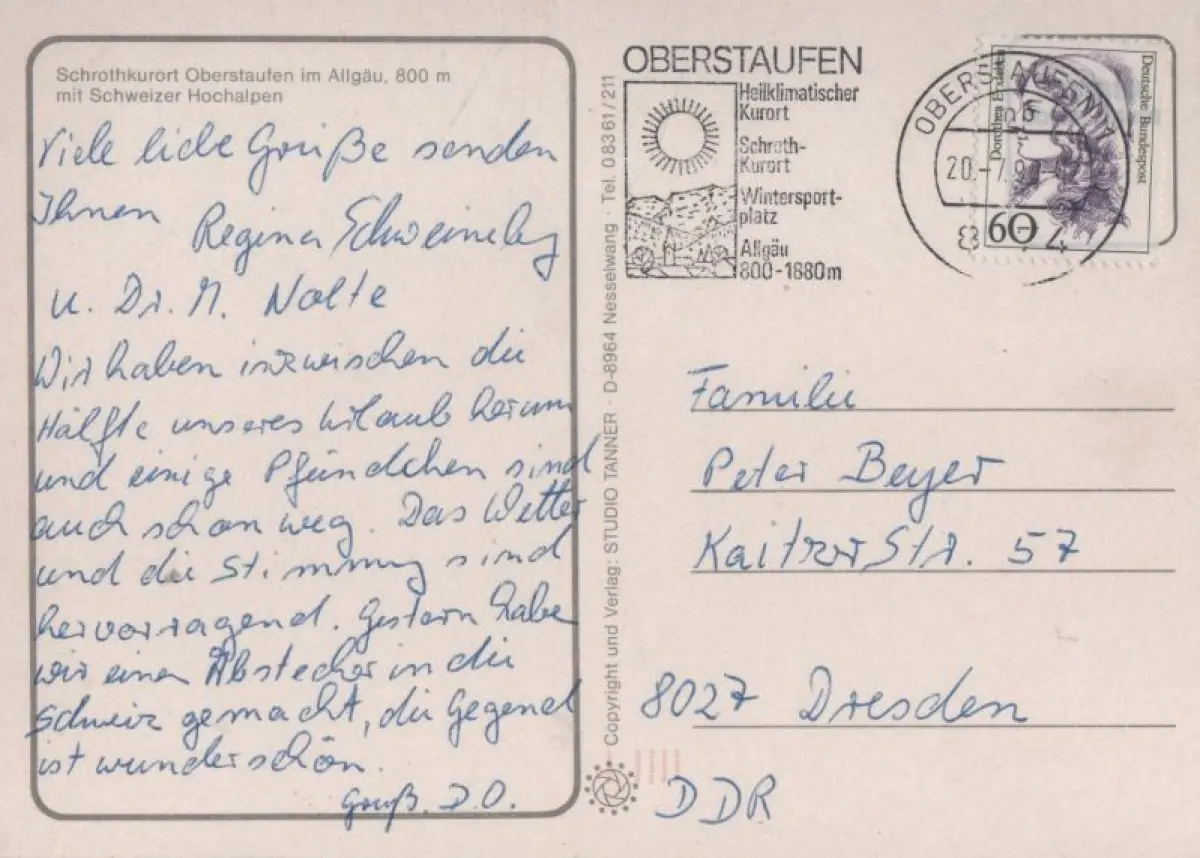 Schrothkurort Oberstaufen im Allgäu, 800 m
mit Schweizer Hochalpen
Viele liebe Grüße senden
Ihnen
Regina
u. Dr. M. Nolte
Wir haben inzwischen die
Hälfte unseres Urlaub herum
und einige Pfündchen sind
auch schon weg. Das Wetter
und die Stimmung sind
hervorragend. Gestern habe
wir einen Abstecher in die
Schweiz gemacht, die Gegend
ist wunderschön.
Gruß. D.O.
Copyright und Verlag: STUDIO TANNER · D-8964 Nesselwang · Tel. 0 83 61 / 211
OBERSTAUFEN
Heilklimatischer
Kurort
Schroth-
Kurort
Wintersport-
platz
Allgäu
800-1680m
OBERSTAUFEN 1
20.-7.9
Deutsche Bundespost
Dorothea Erxleben
60
Familie
Peter Beyer
Kaitzer Str. 57
8027 Dresden
DDR